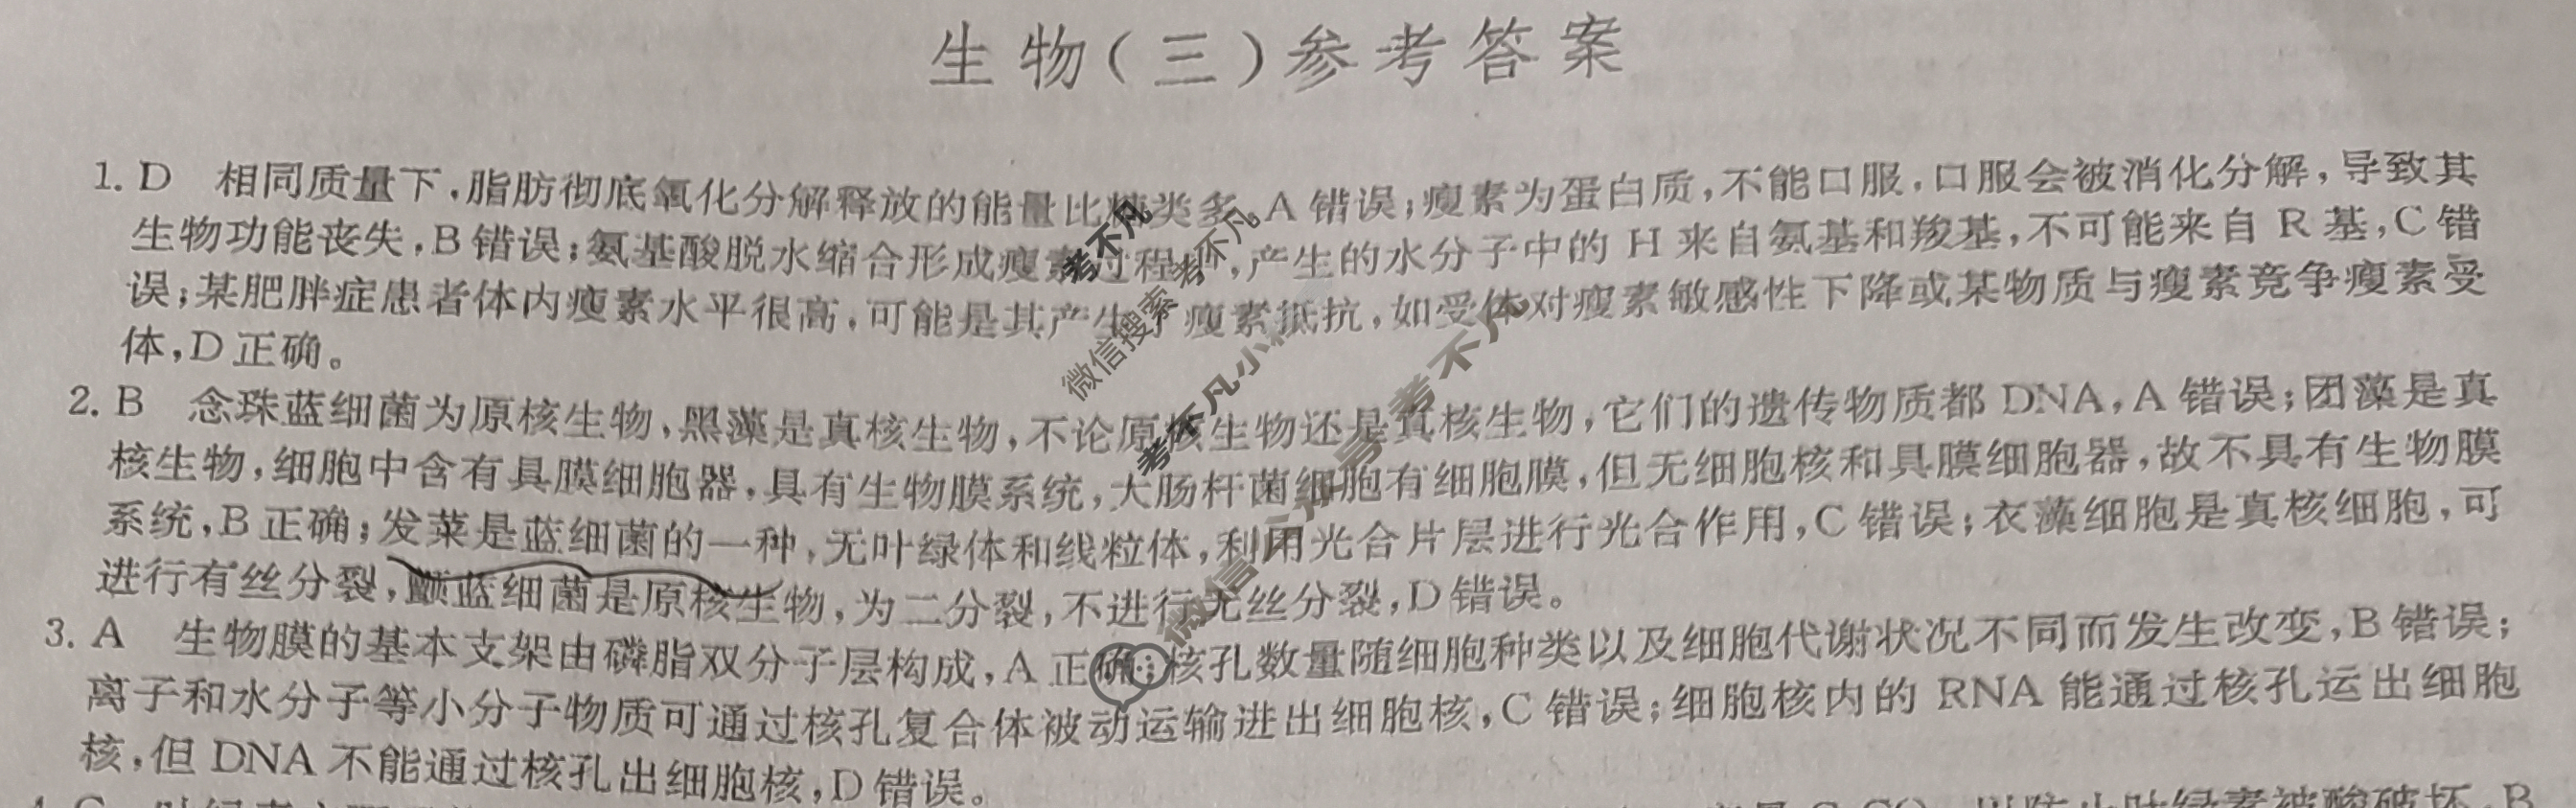 生物(三)参考答案
1. D 相同质量下,脂肪彻底氧化分解释放的能量比糖类多,A 错误;瘦素为蛋白质,不能口服,口服会被消化分解,导致其
生物功能丧失,B 错误;氨基酸脱水缩合形成瘦素过程中,产生的水分子中的 H 来自氨基和羧基,不可能来自 R 基,C 错
误;某肥胖症患者体内瘦素水平很高,可能是其产生了瘦素抵抗,如受体对瘦素敏感性下降或某物质与瘦素竞争瘦素受
体,D 正确。
2. B 念珠蓝细菌为原核生物,黑藻是真核生物,不论原核生物还是真核生物,它们的遗传物质都 DNA,A 错误;团藻是真
核生物,细胞中含有具膜细胞器,具有生物膜系统,大肠杆菌细胞有细胞膜,但无细胞核和具膜细胞器,故不具有生物膜
系统,B 正确;发菜是蓝细菌的一种,无叶绿体和线粒体,利用光合片层进行光合作用,C 错误;衣藻细胞是真核细胞,可
进行有丝分裂,颤蓝细菌是原核生物,为二分裂,不进行无丝分裂,D 错误。
3. A 生物膜的基本支架由磷脂双分子层构成,A 正确;核孔数量随细胞种类以及细胞代谢状况不同而发生改变,B 错误;
离子和水分子等小分子物质可通过核孔复合体被动运输进出细胞核,C 错误;细胞核内的 RNA 能通过核孔运出细胞
核,但 DNA 不能通过核孔出细胞核,D 错误。
考不凡
考不凡
微信搜索
考不凡小程序
微信公众号:考不凡